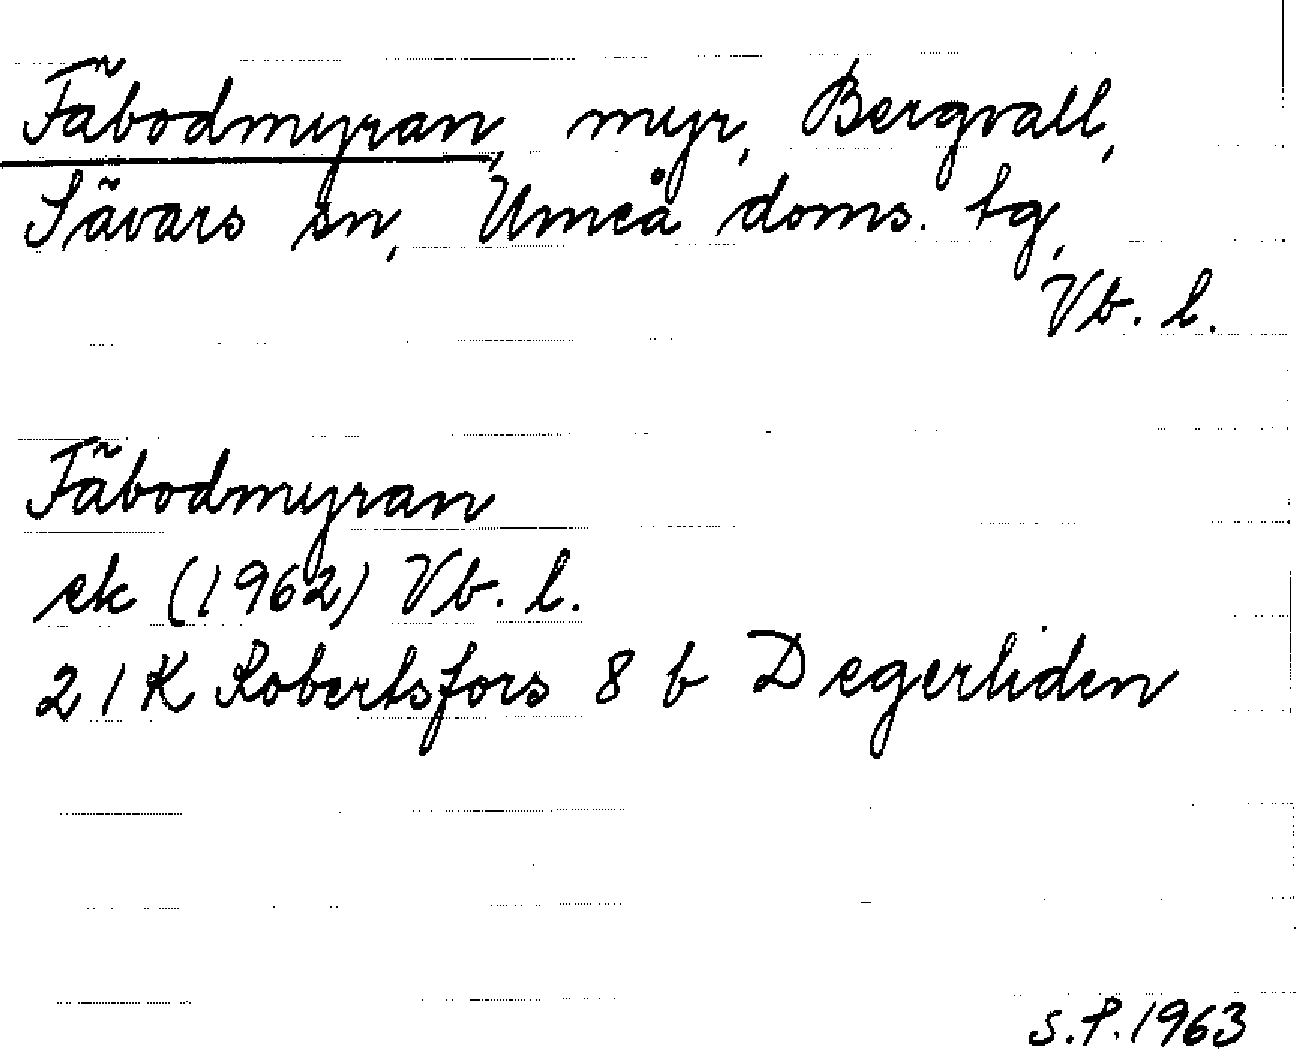 Fäbodmyran, myr, Bergvall,
Sävars sn, Umeå doms. tg,
Vb. l.
Fäbodmyran
ek (1962) Vb. l.
21K Robertsfors 8 b Degerliden
S.P. 1963